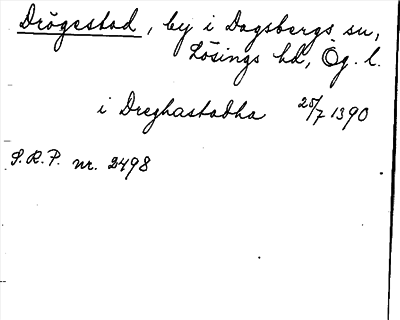 Drögestad, by i Dagsbergs sn,
Lösings hd, Ög. l.
i Dreghastadha 25/7 1390
S.R.P. nr. 2498